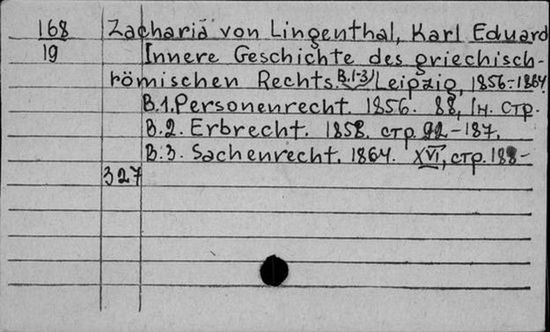 168 Zachariä von Lingenthal, Karl Eduard
19 Innere Geschichte des griechisch-
römischen Rechts. B.1-3) Leipzig, 1856-1864.
B.1. Personenrecht. 1856. 88, 1н. стр.
B.2. Erbrecht. 1858. стр. 92-187.
B.3. Sachenrecht. 1864. XVI, стр. 188-
327